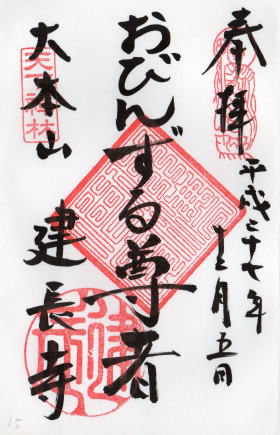 奉拝
平成二十七年
十二月五日
おびんずる尊者
大本山
天下禅林
建長寺
15